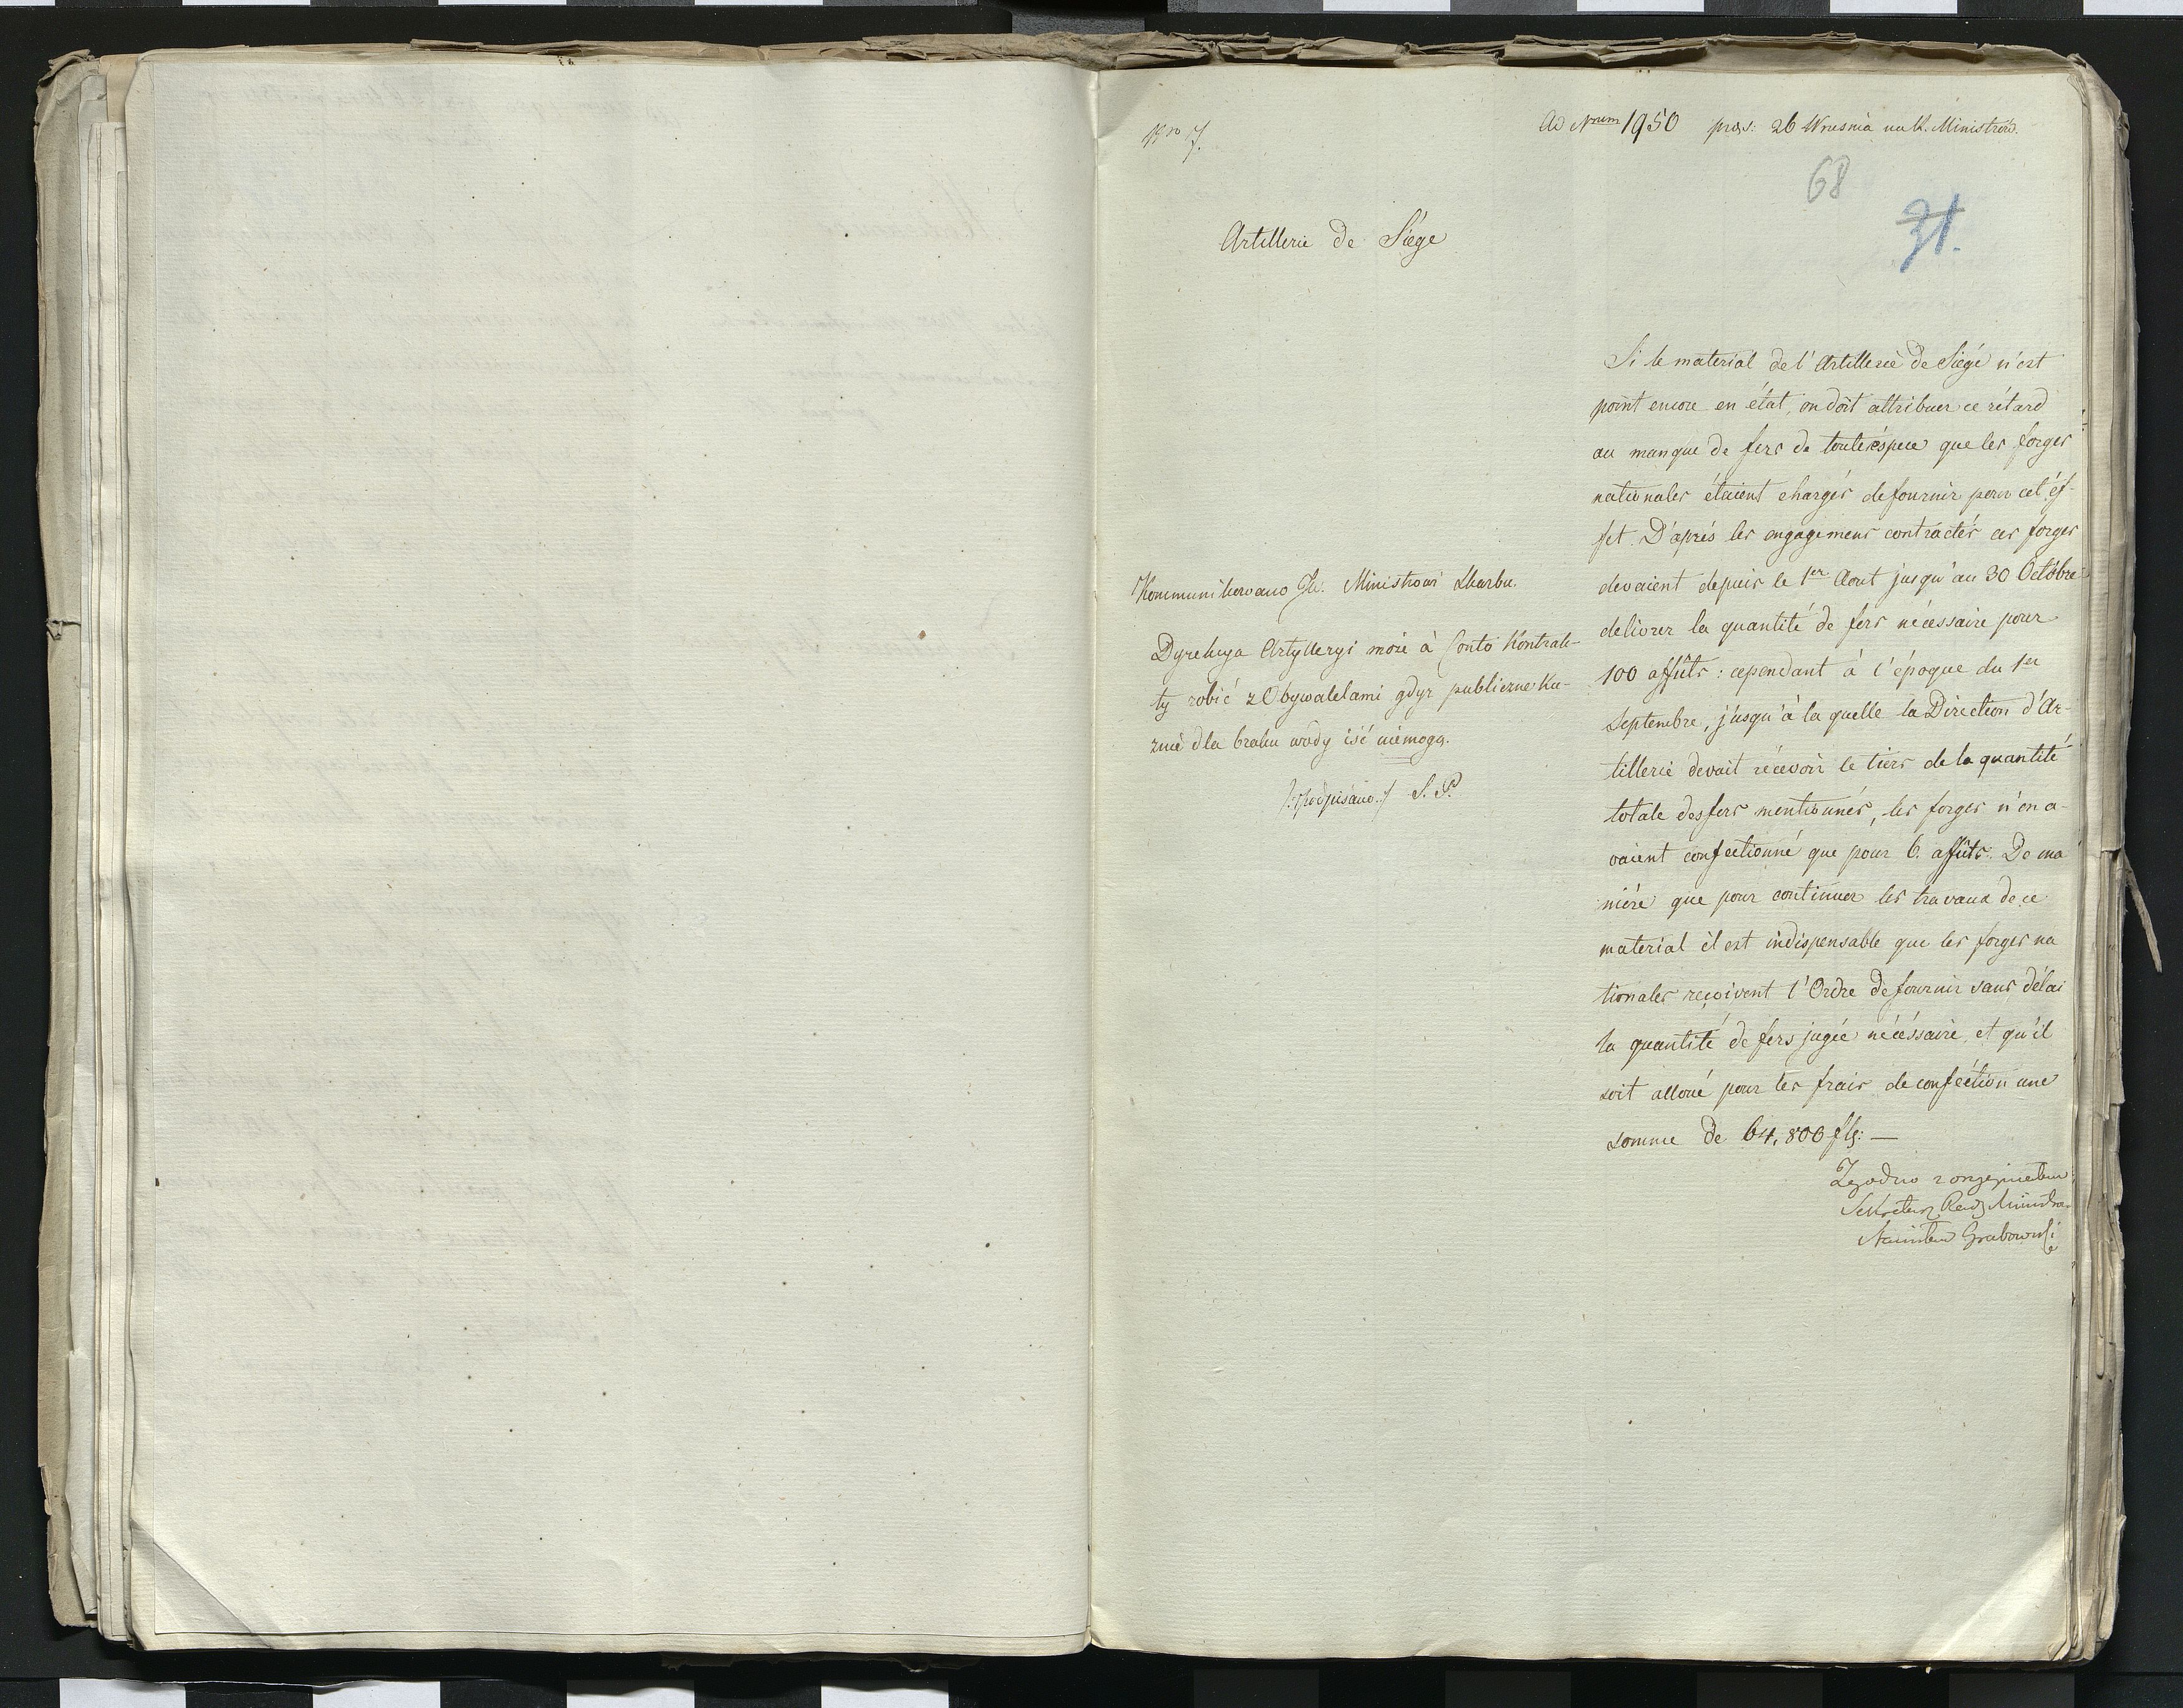 Nro 7.
Ad Nrum 1950 præs: 26 Wresnia na R. Ministrów.
68
31.
Artillerie de Siége
Si le material de l'Artillerie de Siége n'est
point encore en état, on doit attribuer ce rétard
au manque de fers de toute éspece que les forges
nationales étaient chargés de fournir pour cet éf-
fet. D'aprés les engagemens contractés ces forges
devaient depuis le 1er Aout jusqu'au 30 Octobre
delivrer la quantité de fers nécessaire pour
100 affûts : cependant à l'époque du 1er
Septembre, jusqu'à la quelle la Direction d'Ar-
tillerie devait récevoir le tiers de la quantité
totale des fers mentionnés, les forges n'en a-
vaient confectionné que pour 6. affûts. De ma
niére que pour continuer les travaux de ce
material il est indispensable que les forges na
tionales reçoivent l'Ordre de fournir sans délai
la quantité de fers jugée nécéssaire, et qu'il
soit alloué pour les frais de confection une
somme de 64,800 flp: —
Zgodno z oryginałem
Sekretarz Rady Ministrow
Stanisław Grabowski
Kommunikowano JW. Ministrowi Skarbu.
Dyrekcya Artylleryi może à Conto Kontrak-
ty robić z Obywatelami gdyz publiczne Ku-
znie dla braku wody iść niemogą.
/:podpisano:/ S. P.